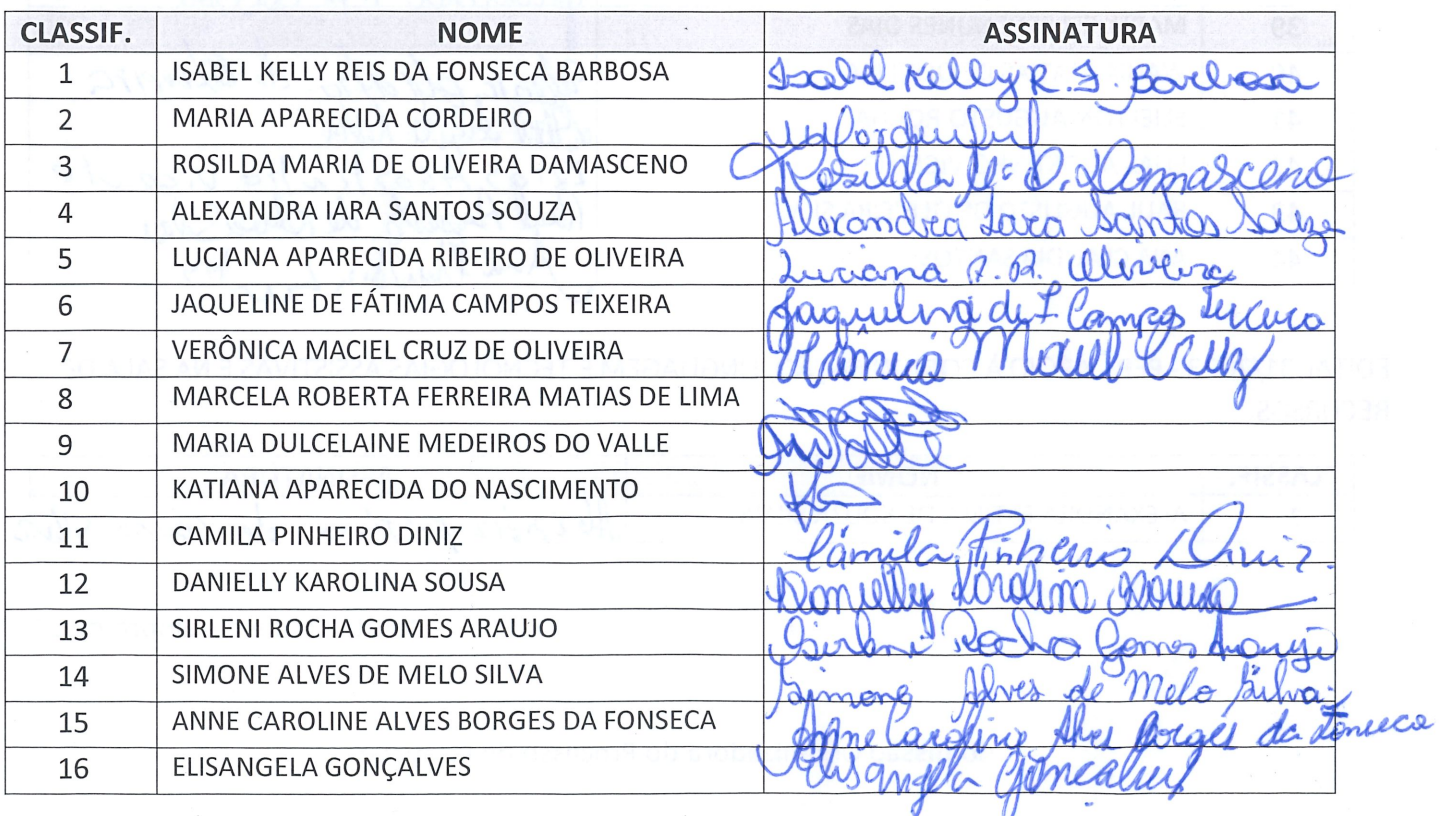 CLASSIF. NOME ASSINATURA
1 ISABEL KELLY REIS DA FONSECA BARBOSA Isabel Kelly R. F. Barbosa
2 MARIA APARECIDA CORDEIRO
3 ROSILDA MARIA DE OLIVEIRA DAMASCENO Rosilda Mª O. Damasceno
4 ALEXANDRA IARA SANTOS SOUZA Alexandra Iara Santos Souza
5 LUCIANA APARECIDA RIBEIRO DE OLIVEIRA Luciana A. R. Oliveira
6 JAQUELINE DE FÁTIMA CAMPOS TEIXEIRA Jaqueline de F Campos Teixeira
7 VERÔNICA MACIEL CRUZ DE OLIVEIRA Verônica Maciel Cruz
8 MARCELA ROBERTA FERREIRA MATIAS DE LIMA
9 MARIA DULCELAINE MEDEIROS DO VALLE
10 KATIANA APARECIDA DO NASCIMENTO
11 CAMILA PINHEIRO DINIZ Camila Pinheiro Diniz.
12 DANIELLY KAROLINA SOUSA Danielly Karolina Sousa
13 SIRLENI ROCHA GOMES ARAUJO Sirleni Rocha Gomes Araujo
14 SIMONE ALVES DE MELO SILVA Simone Alves de Melo Silva
15 ANNE CAROLINE ALVES BORGES DA FONSECA Anne Caroline Alves Borges da Fonseca
16 ELISANGELA GONÇALVES Elisangela Gonçalves